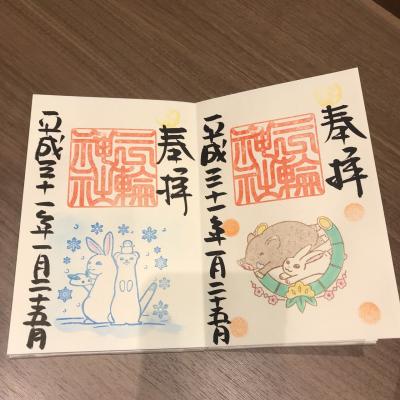 奉拝
三輪
神社
平成三十一年一月二十五日
奉拝
三輪
神社
平成三十一年一月二十五日